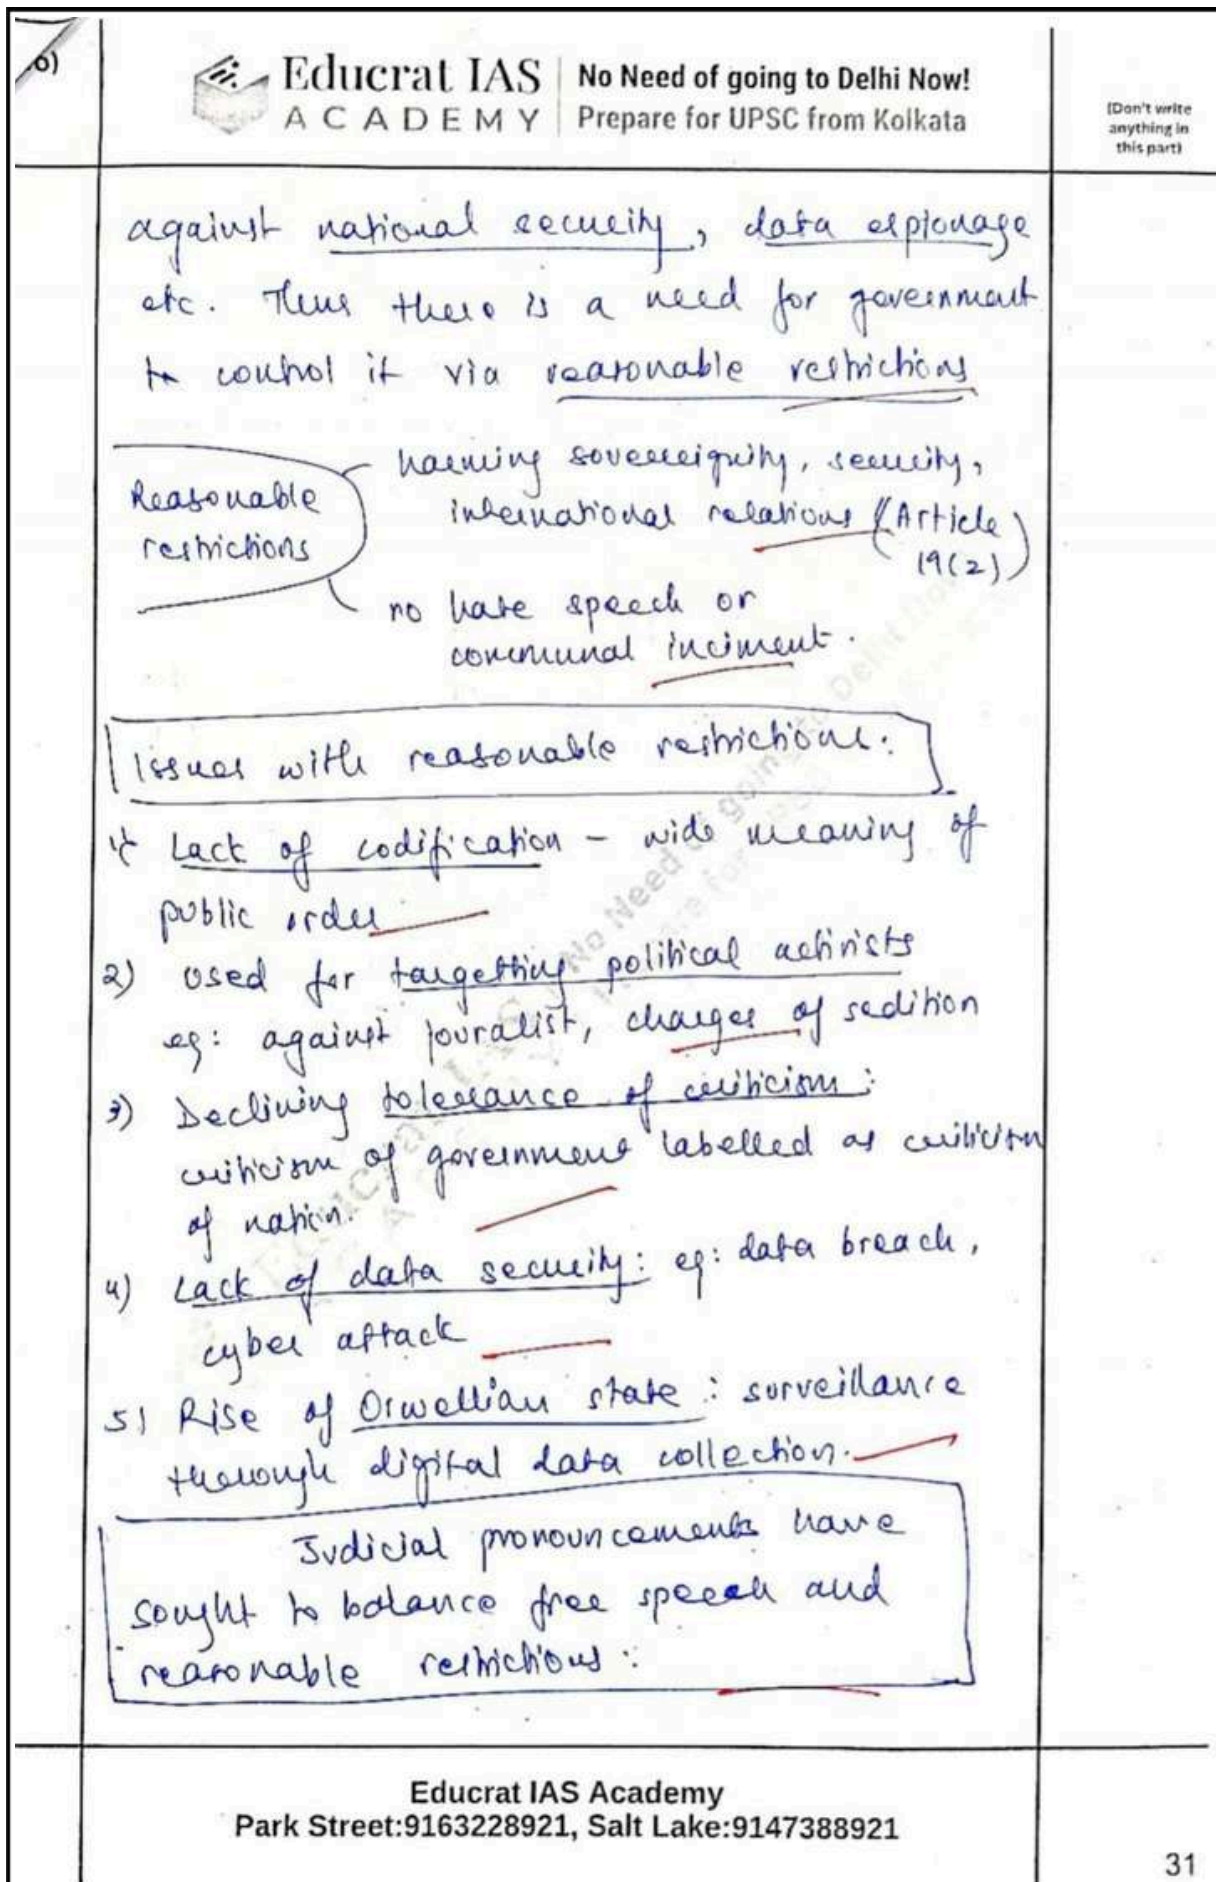 6)
Educrat IAS
ACADEMY
No Need of going to Delhi Now!
Prepare for UPSC from Kolkata
(Don't write
anything in
this part)
against national security, data espionage
etc. Thus there is a need for government
to control it via reasonable restrictions
Reasonable
restrictions
harming sovereignity, security,
international relations (Article
19(2))
no hate speech or
communal inciment.
Issues with reasonable restrictions:
1) Lack of codification – wide meaning of
public order
2) Used for targetting political activists
eg: against jouralist, charges of sedition
3) Declining tolerance of criticism:
criticism of government labelled as criticism
of nation.
4) Lack of data security: eg: data breach,
cyber attack
5) Rise of Orwellian state: surveillance
thorough digital data collection.
Judicial pronouncements have
sought to balance free speech and
reasonable restrictions:
Educrat IAS Academy
Park Street:9163228921, Salt Lake:9147388921
31